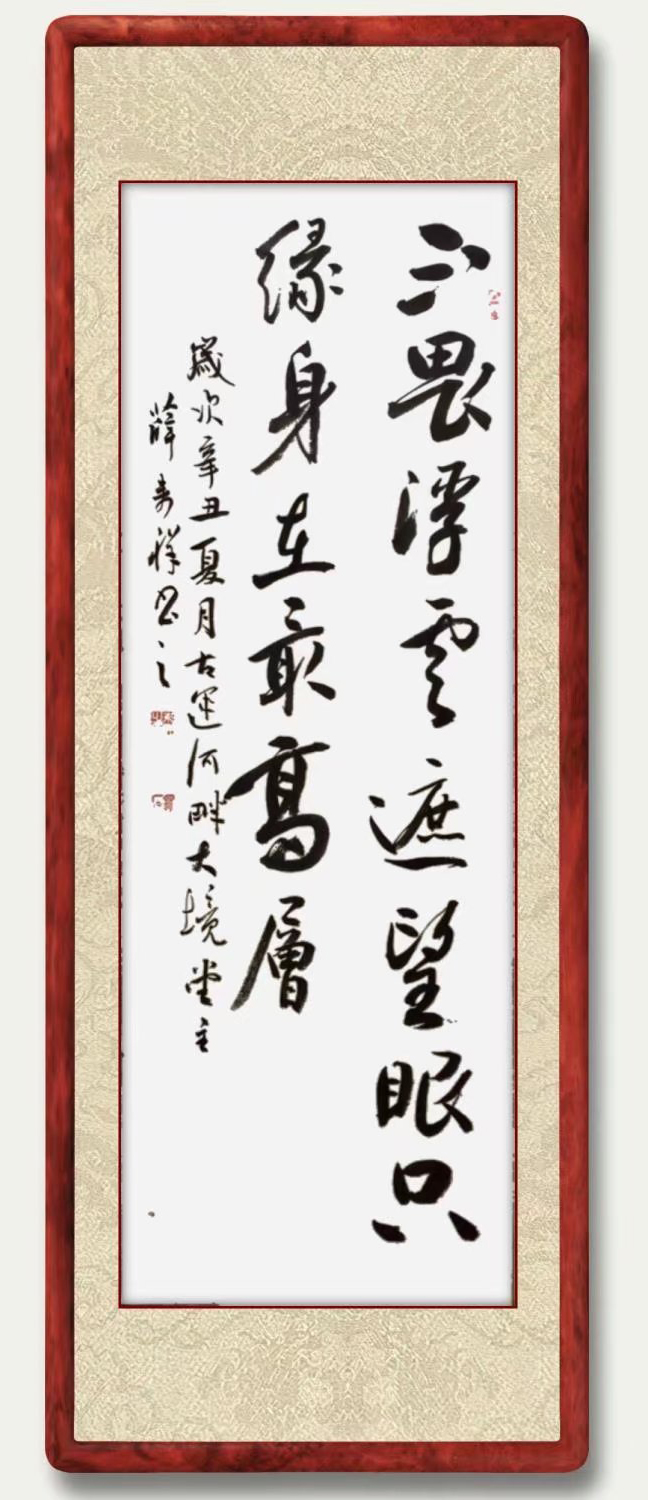 不畏浮雲遮望眼只
緣身在最高層
歲次辛丑夏月古运河畔大境堂主
薛寿祥书之